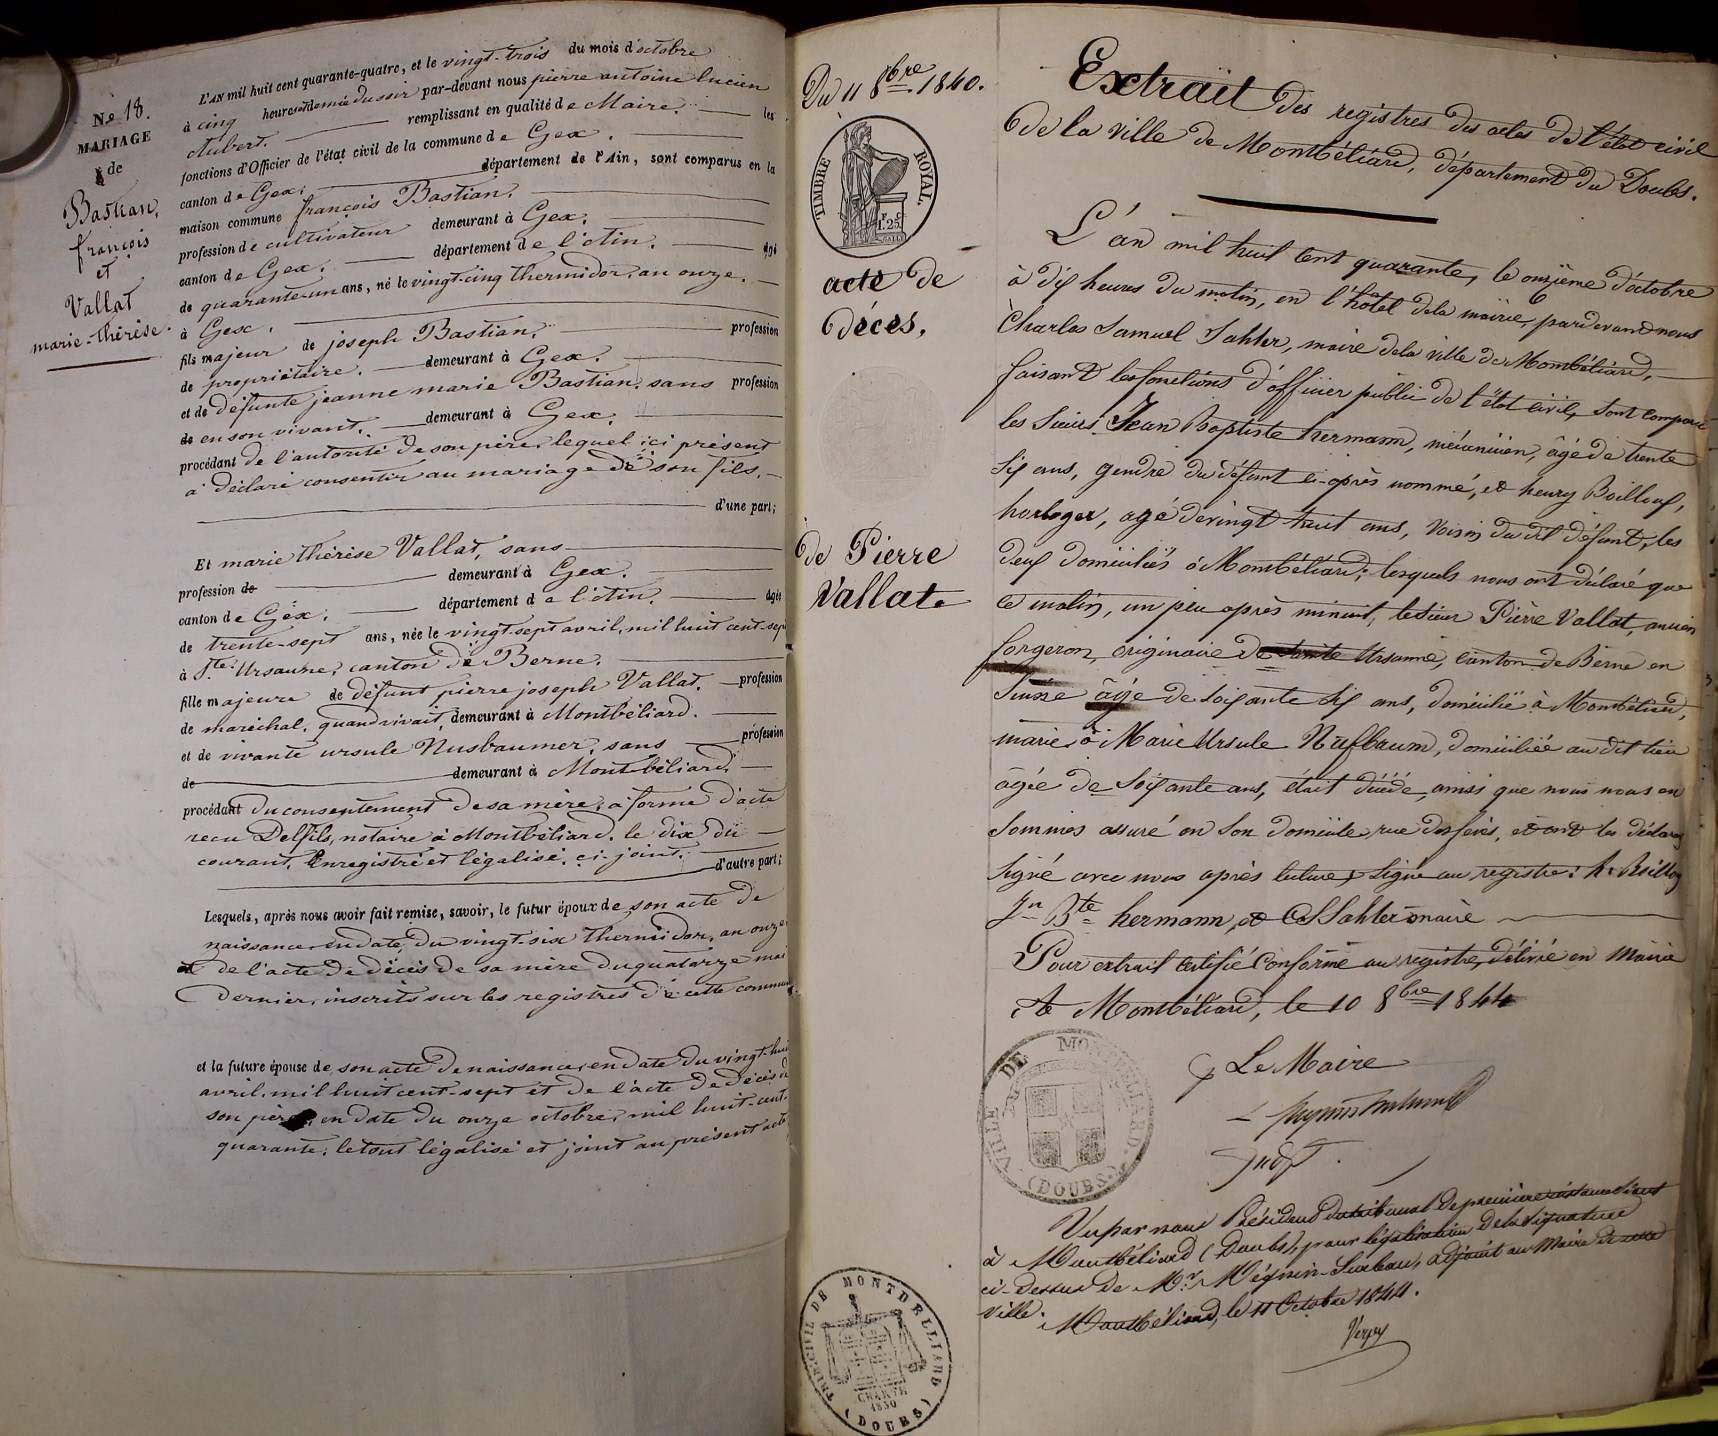 No 18.
MARIAGE
de
Bastian,
françois
et
Vallat
marie-thérèse.
L'AN mil huit cent quarante-quatre, et le vingt-trois du mois d'octobre
à cinq heures et demie du soir par-devant nous pierre antoine lucien
Aubert. remplissant en qualité de Maire. les
fonctions d'Officier de l'état civil de la commune de Gex.
canton de Gex. département de l'Ain, sont comparus en la
maison commune françois Bastian.
profession de cultivateur demeurant à Gex.
canton de Gex. département de l'Ain. âgé
de quarante-un ans, né le vingt-cinq thermidor, an onze.
à Gex.
fils majeur de joseph Bastian. profession
de propriétaire. demeurant à Gex.
et de défunte jeanne marie Bastian. sans profession
de en son vivant. demeurant à Gex.
procédant de l'autorité de son père, lequel ici présent
a déclaré consentir au mariage de son fils.
d'une part;
Et marie thérèse Vallat, sans
profession de demeurant à Gex.
canton de Gex. département de l'Ain. âgée
de trente-sept ans, née le vingt-sept avril, mil huit cent-sept
à Ste Ursanne, canton de Berne.
fille majeure de défunt pierre joseph Vallat. profession
de maréchal, quand vivait, demeurant à Montbéliard.
et de vivante ursule Nusbaumer, sans profession
de demeurant à Montbéliard.
procédant du consentement de sa mère, à forme d'acte
recu Delfils, notaire à Montbéliard, le dix du
courant, Enregistré et légalisé, ci-joint. d'autre part;
Lesquels, après nous avoir fait remise, savoir, le futur époux de son acte de
naissance, en date du vingt-six thermidor, an onze
et de l'acte de décès de sa mère du quatorze mai
dernier, inscrits sur les registres de cette commune
et la future épouse de son acte de naissance, en date du vingt-huit
avril, mil huit cent-sept et de l'acte de décès de
son père, en date du onze octobre, mil huit-cent-
quarante, le tout légalisé et joint au présent acte
Du 11 8bre 1840.
TIMBRE ROYAL
1.25
acte de
décès,
de Pierre
Vallat.
Extrait des registres des actes de l'état civil
de la ville de Montbéliard, département du Doubs.
L'an mil huit cent quarante, le onzième d'octobre
à dix heures du matin, en l'hôtel de la mairie, pardevant nous
Charles Samuel Sahler, maire de la ville de Montbéliard,
faisant les fonctions d'officier public de l'état civil, sont comparu
les sieurs Jean Baptiste hermann, mécanicien, âgé de trente
six ans, gendre du défunt ci-après nommé, et henry Boilloux,
horloger, agé de vingt huit ans, voisin du dit défunt, les
deux domiciliés à Montbéliard; lesquels nous ont déclaré que
ce matin, un peu après minuit, le sieur Pierre Vallat, ancien
forgeron, originaire de Sainte Ursanne, canton de Berne en
Suisse âgé de soixante six ans, domicilié à Montbéliard,
marié à Marie Ursule Nüßbaum, domiciliée au dit lieu
âgée de soixante ans, était décédé, ainsi que nous nous en
sommes assuré en son domicile, rue des febvres, et ont les déclarans
signé avec nous après lecture; signé au registre: h. Boilloux
Jn Bte hermann, et CS Sahler maire
Pour extrait certifié Conforme au registre, délivré en Mairie
à Montbéliard, le 10 8bre 1844
Le Maire
VILLE DE MONTBÉLIARD. (DOUBS.)
Vu par nous Président du tribunal de première instance séant
à Montbéliard (Doubs), pour légalisation de la signature
ci-dessus de Mr. Mégnin-Surleau, adjoint au Maire de cette
ville. Montbéliard, le 11 Octobre 1844.
TRIB. CIVIL DE MONTBELLIARD (DOUBS)
CHARTE
1830